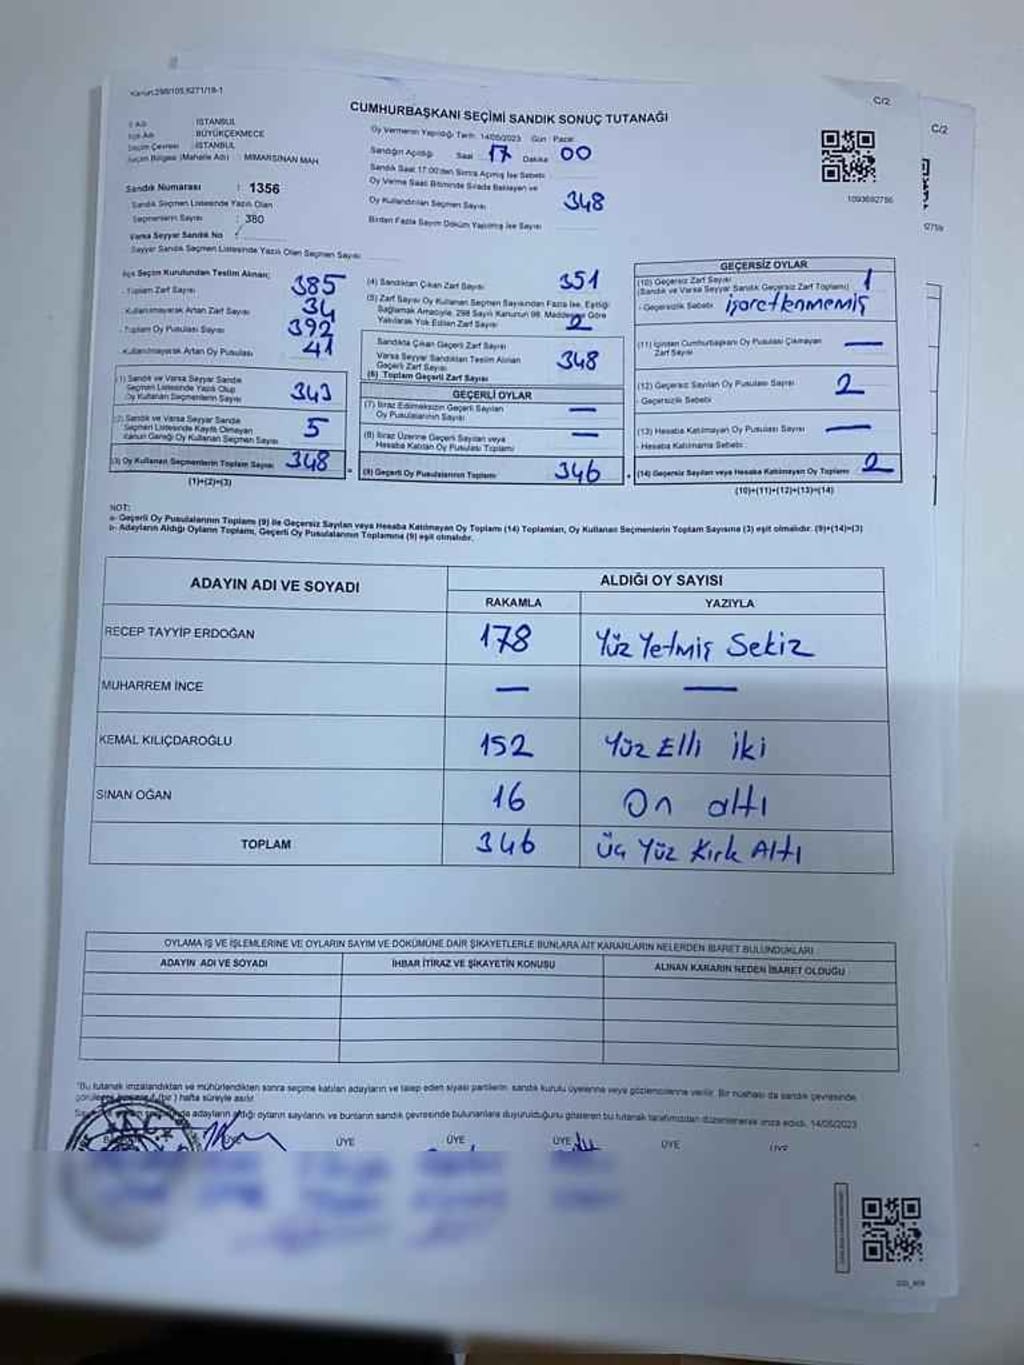 Kanun:298/105,6271/18-1
C/2
CUMHURBAŞKANI SEÇİMİ SANDIK SONUÇ TUTANAĞI
C/2
İl Adı : İSTANBUL
İlçe Adı : BÜYÜKÇEKMECE
Seçim Çevresi : İSTANBUL
Seçim Bölgesi (Mahalle Adı) : MİMARSİNAN MAH
Sandık Numarası : 1356
Sandık Seçmen Listesinde Yazılı Olan
Seçmenlerin Sayısı : 380
Varsa Seyyar Sandık No :
Seyyar Sandık Seçmen Listesinde Yazılı Olan Seçmen Sayısı
Oy Vermenin Yapıldığı Tarih: 14/05/2023 Gün : Pazar
Sandığın Açıldığı Saat 17 Dakika 00
Sandık Saat 17:00'den Sonra Açılmış İse Sebebi
Oy Verme Saati Bitiminde Sırada Bekleyen ve
Oy Kullandırılan Seçmen Sayısı 348
Birden Fazla Sayım Döküm Yapılmış İse Sayısı
1093692786
İlçe Seçim Kurulundan Teslim Alınan;
- Toplam Zarf Sayısı 385
- Kullanılmayarak Artan Zarf Sayısı 34
- Toplam Oy Pusulası Sayısı 392
- Kullanılmayarak Artan Oy Pusulası 41
(1) Sandık ve Varsa Seyyar Sandık
Seçmen Listesinde Yazılı Olup
Oy Kullanan Seçmenlerin Sayısı 343
(2) Sandık ve Varsa Seyyar Sandık
Seçmen Listesinde Kayıtlı Olmayan
Kanun Gereği Oy Kullanan Seçmen Sayısı 5
(3) Oy Kullanan Seçmenlerin Toplam Sayısı 348
(1)+(2)=(3)
(4) Sandıktan Çıkan Zarf Sayısı 351
(5) Zarf Sayısı Oy Kullanan Seçmen Sayısından Fazla İse, Eşitliği
Sağlamak Amacıyla, 298 Sayılı Kanunun 98. Maddesine Göre
Yakılarak Yok Edilen Zarf Sayısı 2
Sandıkta Çıkan Geçerli Zarf Sayısı
Varsa Seyyar Sandıktan Teslim Alınan
Geçerli Zarf Sayısı
(6) Toplam Geçerli Zarf Sayısı 348
GEÇERLİ OYLAR
(7) İtiraz Edilmeksizin Geçerli Sayılan
Oy Pusulalarının Sayısı —
(8) İtiraz Üzerine Geçerli Sayılan veya
Hesaba Katılan Oy Pusulası Toplamı —
(9) Geçerli Oy Pusulalarının Toplamı 346
GEÇERSİZ OYLAR
(10) Geçersiz Zarf Sayısı
(Sandık ve Varsa Seyyar Sandık Geçersiz Zarf Toplamı) 1
- Geçersizlik Sebebi : işaretlenmemiş
(11) İçinden Cumhurbaşkanı Oy Pusulası Çıkmayan
Zarf Sayısı —
(12) Geçersiz Sayılan Oy Pusulası Sayısı 2
- Geçersizlik Sebebi :
(13) Hesaba Katılmayan Oy Pusulası Sayısı —
- Hesaba Katılmama Sebebi :
(14) Geçersiz Sayılan veya Hesaba Katılmayan Oy Toplamı 2
(10)+(11)+(12)+(13)=(14)
NOT:
a- Geçerli Oy Pusulalarının Toplamı (9) ile Geçersiz Sayılan veya Hesaba Katılmayan Oy Toplamı (14) Toplamları, Oy Kullanan Seçmenlerin Toplam Sayısına (3) eşit olmalıdır. (9)+(14)=(3)
b- Adayların Aldığı Oyların Toplamı, Geçerli Oy Pusulalarının Toplamına (9) eşit olmalıdır.
ADAYIN ADI VE SOYADI
ALDIĞI OY SAYISI
RAKAMLA YAZIYLA
RECEP TAYYİP ERDOĞAN 178 Yüz Yetmiş Sekiz
MUHARREM İNCE — —
KEMAL KILIÇDAROĞLU 152 Yüz Elli iki
SİNAN OĞAN 16 On altı
TOPLAM 346 Üç Yüz Kırk Altı
OYLAMA İŞ VE İŞLEMLERİNE VE OYLARIN SAYIM VE DÖKÜMÜNE DAİR ŞİKAYETLERLE BUNLARA AİT KARARLARIN NELERDEN İBARET BULUNDUKLARI
ADAYIN ADI VE SOYADI İHBAR İTİRAZ VE ŞİKAYETİN KONUSU ALINAN KARARIN NEDEN İBARET OLDUĞU
*Bu tutanak imzalandıktan ve mühürlendikten sonra seçime katılan adayların ve talep eden siyasi partilerin, sandık kurulu üyelerine veya gözlemcilerine verilir. Bir nüshası da sandık çevresinde
(bir) hafta süreyle asılır.
adayların aldığı oyların sayılarını ve bunların sandık çevresinde bulunanlara duyurulduğunu gösteren bu tutanak tarafımızdan düzenlenerek imza edildi. 14/05/2023
ÜYE ÜYE ÜYE ÜYE ÜYE ÜYE